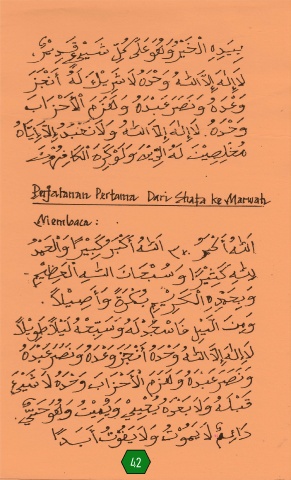 بِيَدِهِ الْخَيْرُ وَهُوَ عَلَى كُلِّ شَيْءٍ قَدِيْرٌ
لَا إِلٰهَ إِلَّا اللهُ وَحْدَهُ لَا شَرِيْكَ لَهُ أَنْجَزَ
وَعْدَهُ وَنَصَرَ عَبْدَهُ وَهَزَمَ الْأَحْزَابَ
وَحْدَهُ. لَا إِلٰهَ إِلَّا اللهُ وَلَا نَعْبُدُ إِلَّا إِيَّاهُ
مُخْلِصِيْنَ لَهُ الدِّيْنَ وَلَوْ كَرِهَ الْكَافِرُوْنَ
Perjalanan Pertama Dari Shafa ke Marwah
Membaca :
اَللهُ أَكْبَرُ ٣× اَللهُ أَكْبَرُ كَبِيْرًا وَالْحَمْدُ
لِلّٰهِ كَثِيْرًا وَسُبْحَانَ اللهِ الْعَظِيْمِ
وَبِحَمْدِهِ الْكَرِيْمِ بُكْرَةً وَأَصِيْلًا.
وَمِنَ اللَّيْلِ فَاسْجُدْ لَهُ وَسَبِّحْهُ لَيْلًا طَوِيْلًا
لَا إِلٰهَ إِلَّا اللهُ وَحْدَهُ أَنْجَزَ وَعْدَهُ وَنَصَرَ عَبْدَهُ
وَنَصَرَ عَبْدَهُ وَهَزَمَ الْأَحْزَابَ وَحْدَهُ لَا شَيْءَ
قَبْلَهُ وَلَا بَعْدَهُ يُحْيِيْ وَيُمِيْتُ وَهُوَ حَيٌّ
دَائِمٌ لَا يَمُوْتُ وَلَا يَفُوْتُ أَبَدًا
42